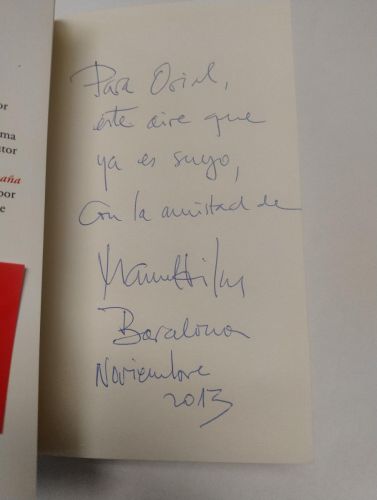 or
ma
itor
aña
por
e
Para Oriol,
este aire que
ya es suyo,
Con la amistad de
Barcelona
Noviembre
2013